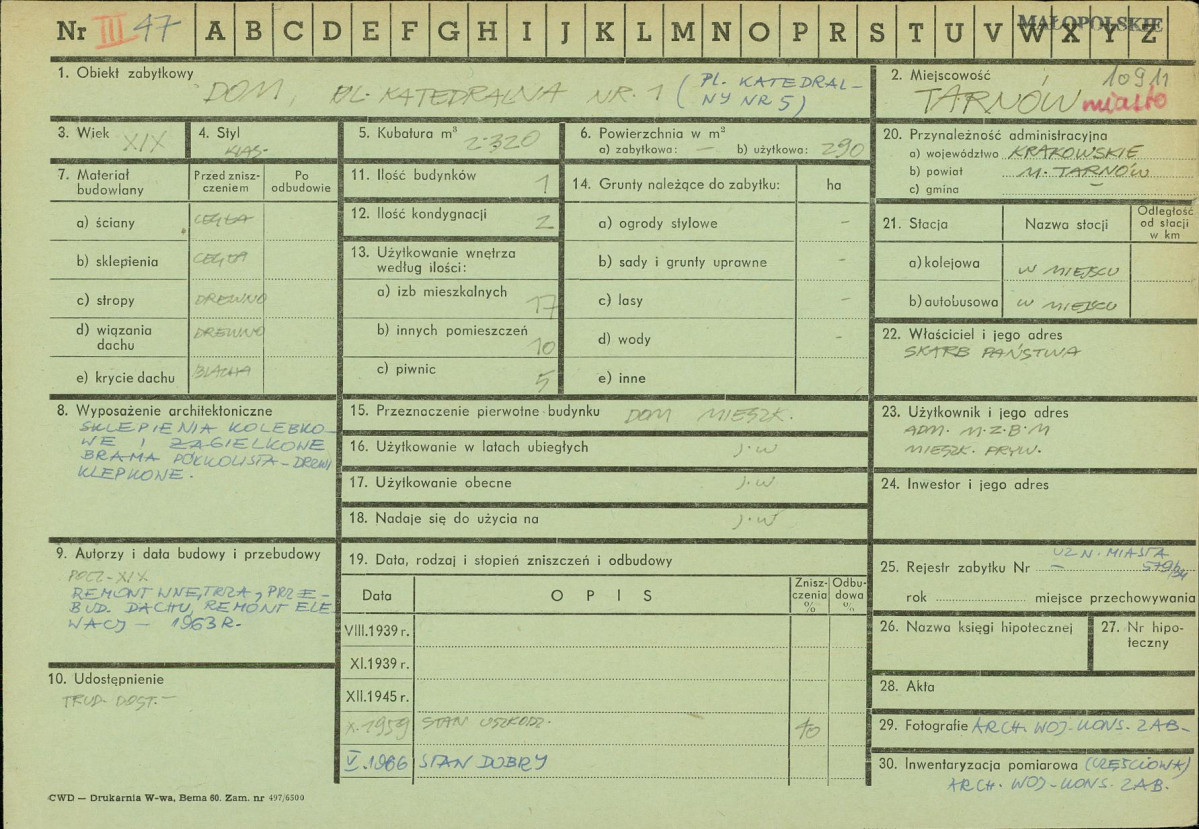 Nr III 47 A B C D E F G H I J K L M N O P R S T U V W X Y Z MAŁOPOLSKIE
1. Obiekt zabytkowy DOM, PL. KATEDRALNA NR. 1 (PL. KATEDRAL-
NY NR 5)
2. Miejscowość 10911
TARNÓW miasto
3. Wiek XIX
4. Styl KLAS-
5. Kubatura m³ 2320
6. Powierzchnia w m²
a) zabytkowa: — b) użytkowa: 290
20. Przynależność administracyjna
a) województwo KRAKOWSKIE
b) powiat M. TARNÓW
c) gmina —
7. Materiał budowlany
Przed znisz-
czeniem
Po
odbudowie
a) ściany CEGŁA
b) sklepienia CEGŁA
c) stropy DREWNO
d) wiązania
dachu DREWNO
e) krycie dachu BLACHA
11. Ilość budynków 1
12. Ilość kondygnacji 2
13. Użytkowanie wnętrza
według ilości:
a) izb mieszkalnych 17
b) innych pomieszczeń 10
c) piwnic 5
14. Grunty należące do zabytku: ha
a) ogrody stylowe –
b) sady i grunty uprawne –
c) lasy –
d) wody –
e) inne
21. Stacja
Nazwa stacji
Odległość
od stacji
w km
a) kolejowa W MIEJSCU
b) autobusowa W MIEJSCU
22. Właściciel i jego adres
SKARB PAŃSTWA
8. Wyposażenie architektoniczne
SKLEPIENIA KOLEBKO-
WE I ŻAGIELKOWE
BRAMA PÓŁKOLISTA – DRZWI
KLEPKOWE.
15. Przeznaczenie pierwotne budynku DOM MIESZK.
16. Użytkowanie w latach ubiegłych J.W
17. Użytkowanie obecne J.W
18. Nadaje się do użycia na J.W
23. Użytkownik i jego adres
ADM. M.Z.B.M
MIESZK. PRYW.
24. Inwestor i jego adres
9. Autorzy i data budowy i przebudowy
POCZ. XIX
REMONT WNĘTRZA, PRZE-
BUD. DACHU, REMONT ELE-
WACJI – 1963 R.
19. Data, rodzaj i stopień zniszczeń i odbudowy
Data
O P I S
Znisz-
czenia
%
Odbu-
dowa
%
VIII.1939 r.
XI.1939 r.
XII.1945 r.
X.1959 STAN USZKODZ. 10
V.1966 STAN DOBRY
25. Rejestr zabytku Nr UZN. MIASTA
rok miejsce przechowywania
26. Nazwa księgi hipotecznej
27. Nr hipo-
teczny
10. Udostępnienie
TRUD. DOST. –
28. Akta
29. Fotografie ARCH. WOJ. KONS. ZAB.
30. Inwentaryzacja pomiarowa (CZĘŚCIOWA)
ARCH. WOJ. KONS. ZAB.
CWD — Drukarnia W-wa, Bema 60. Zam. nr 497/6500